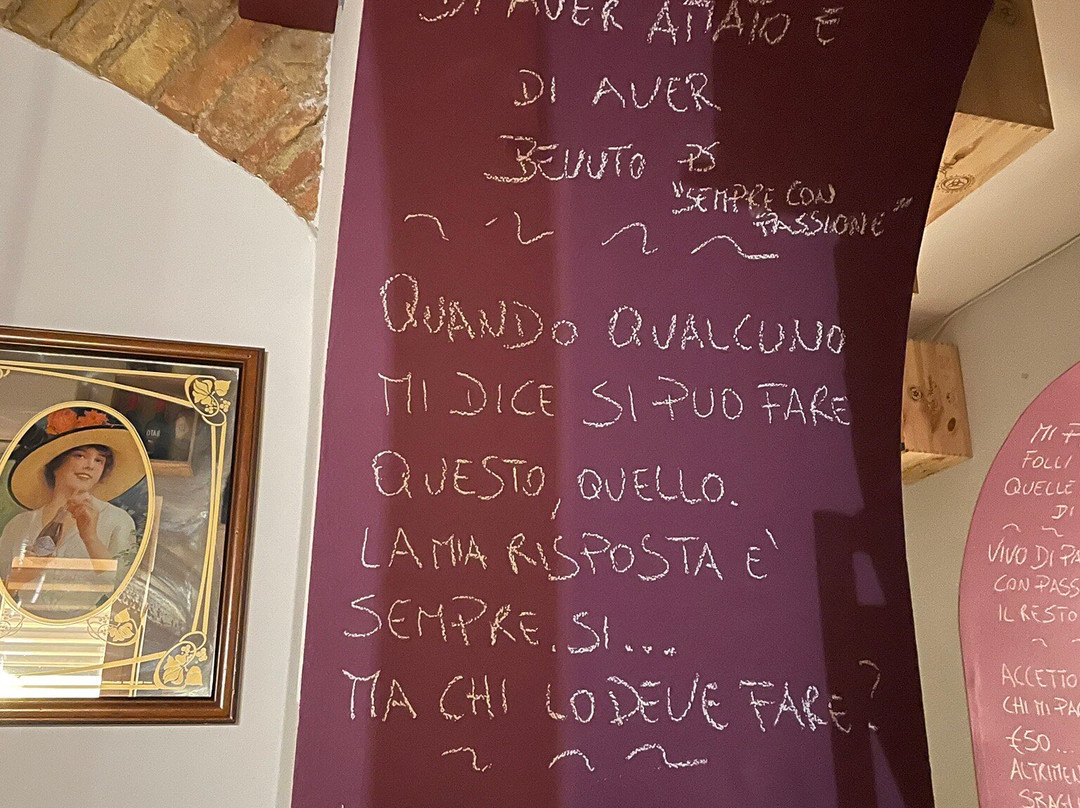 DI AVER AMATO E
DI AVER
BEVUTO PS
"SEMPRE CON
PASSIONE"
QUANDO QUALCUNO
MI DICE SI PUO FARE
QUESTO, QUELLO.
LA MIA RISPOSTA E'
SEMPRE. SI...
MA CHI LO DEVE FARE?
MI
FOLLI
QUELLE
DI
VIVO DI
CON
IL RESTO
ACCETTO
CHI MI
€50...